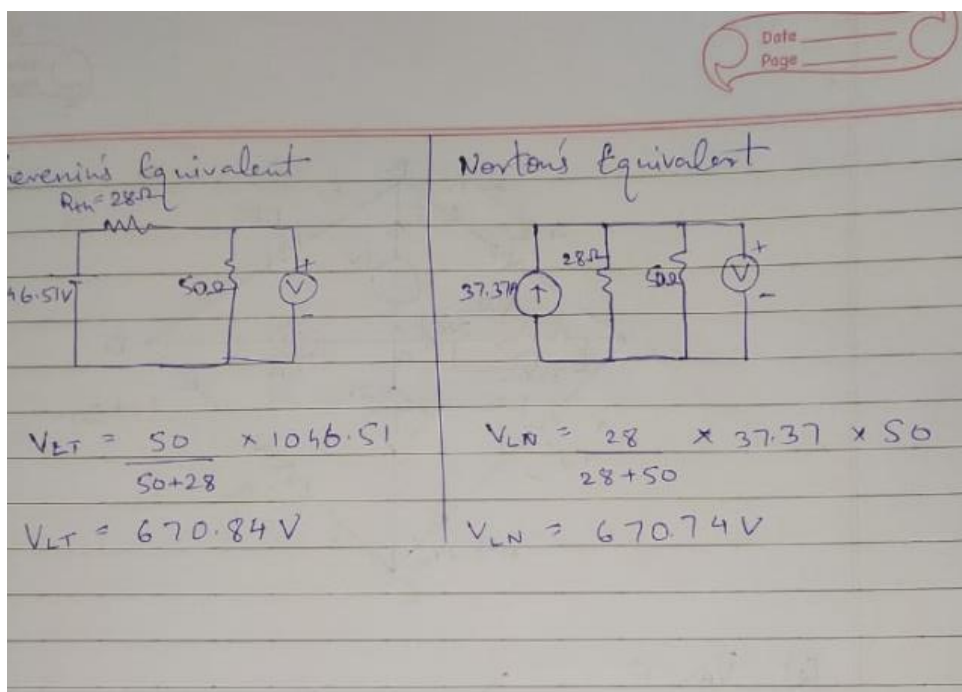 Date
Page
evenin's Equivalent
Rth = 28Ω
46.51V
50Ω
V
+
-
VLT = 50 × 1046.51
50+28
VLT = 670.84 V
Norton's Equivalent
37.37A
28Ω
50Ω
V
+
-
VLN = 28 × 37.37 × 50
28+50
VLN = 670.74 V